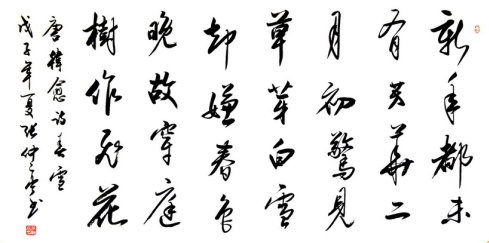 新年都未
有芳华二
月初惊见
草芽白雪
却嫌春色
晚故穿庭
樹作飛花
唐韓愈詩春雪
戊子年夏張仲亭书